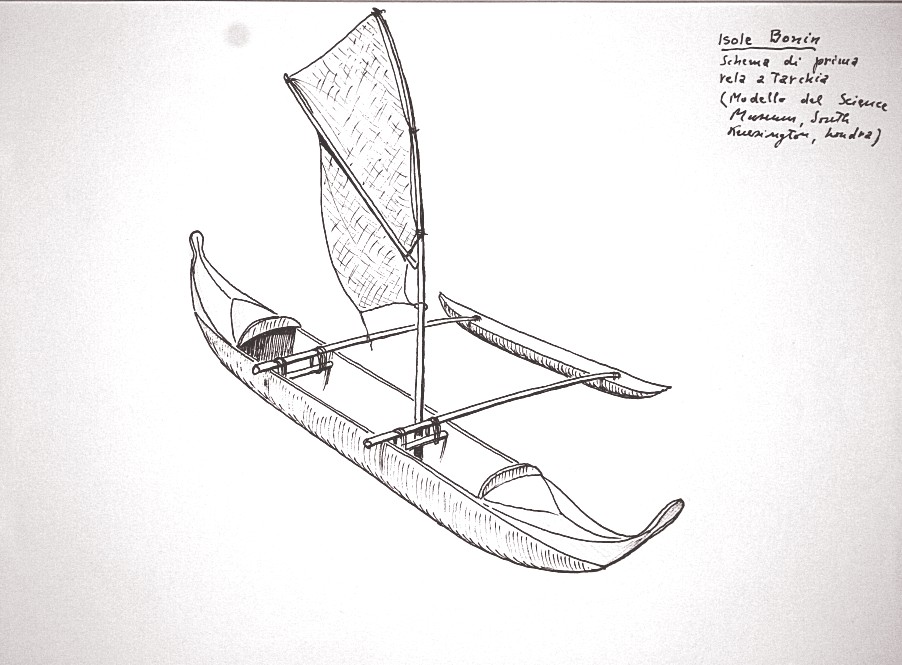 Isole Bonin
Schema di prima
vela a Tarchia
(Modello del Science
Museum, South
Kensington, Londra)